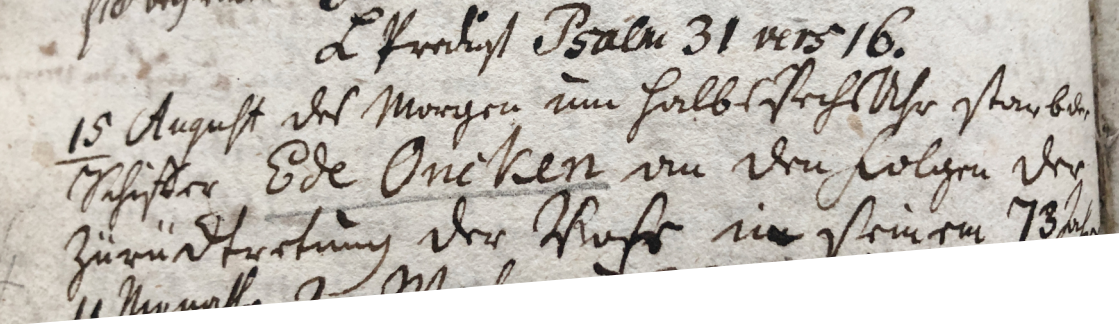 L Predigt Psalm 31 vers 16.
15 August des Morgen um halb Sechs Uhr starb der
Schiffer Ede Oncken an den Folgen der
Zurücktretung der Rose in seinem 73 Jahr
11 Monath